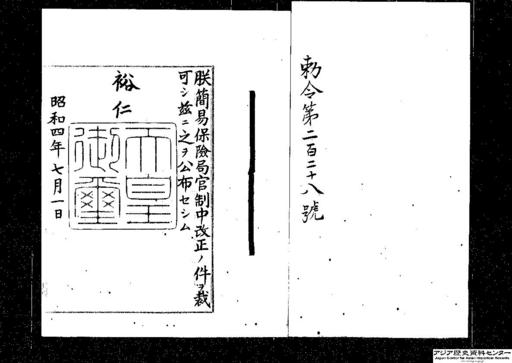 勅令第二百二十八號
朕簡易保險局官制中改正ノ件ヲ裁
可シ玆ニ之ヲ公布セシム
裕仁
天皇御璽
昭和四年七月一日
アジア歴史資料センター
Japan Center for Asian Historical Records